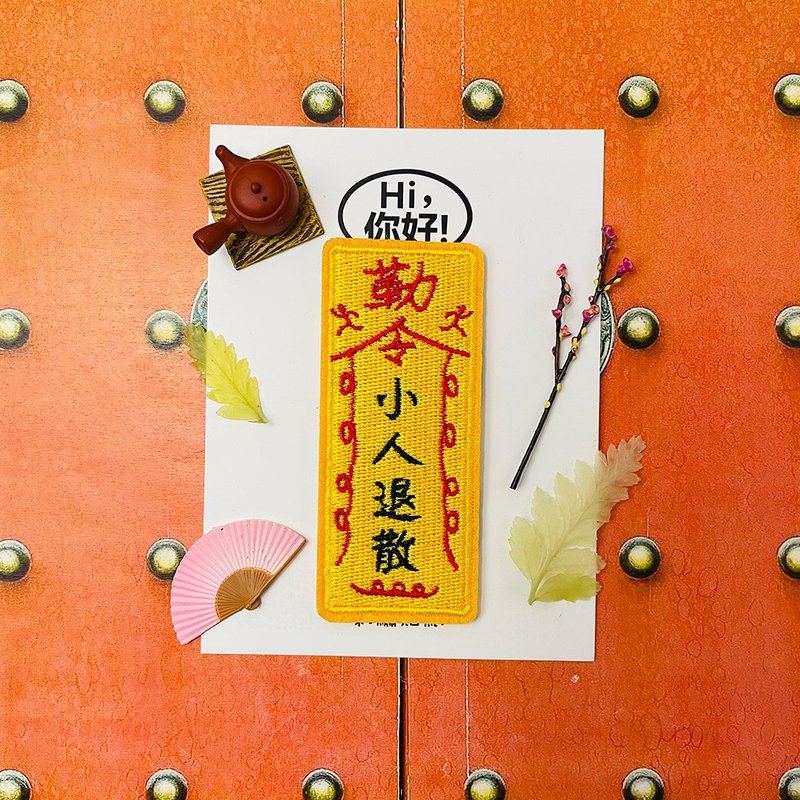 Hi，
你好!
勒
令
小
人
退
散